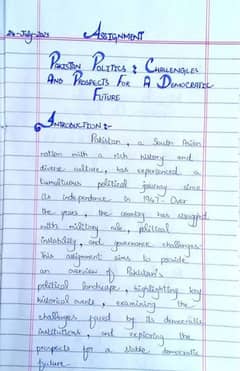 24-July-2023
ASSIGNMENT
PAKISTAN POLITICS : CHALLENGES
AND PROSPECTS FOR A DEMOCRATIC
FUTURE
INTRODUCTION:-
Pakistan, a South Asian
nation with a rich history and
diverse culture, has experienced a
tumultuous political journey since
its independence in 1947. Over
the years, the country has struggled
with military rule, political
instability, and governance challenges.
This assignment aims to provide
an overview of Pakistan's
political landscape, highlighting key
historical events, examining the
challenges faced by its democratic
institutions, and exploring the
prospects for a stable democratic
future.